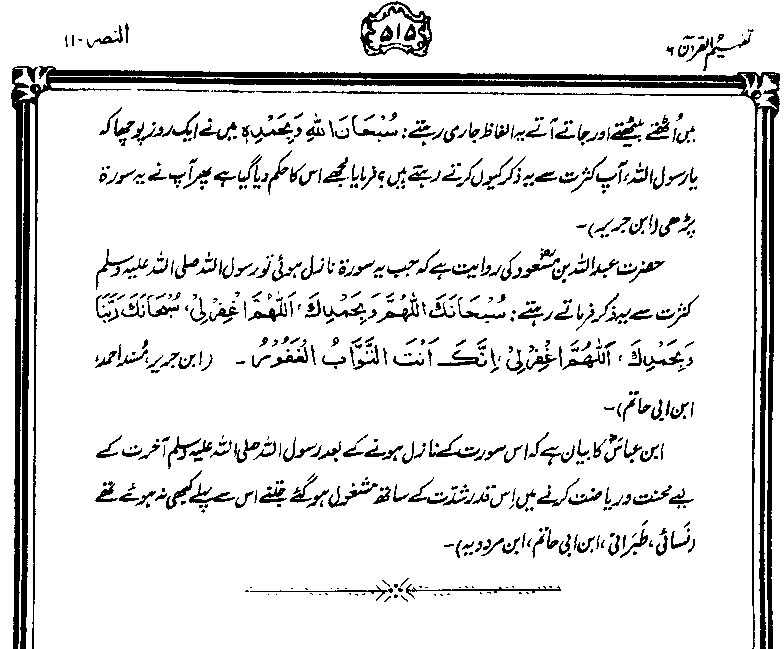 تفہیم القرآن ۶
۵۱۵
النصر ۱۱۰
میں اُٹھتے بیٹھتے اور جاتے آتے یہ الفاظ جاری رہتے: سُبْحَانَ اللهِ وَبِحَمْدِہٖ میں نے ایک روز پوچھا کہ
یا رسول اللہ، آپ کثرت سے یہ ذکر کیوں کرتے رہتے ہیں؟ فرمایا مجھے اس کا حکم دیا گیا ہے پھر آپ نے یہ سورۃ
پڑھی (ابن جریر)۔
حضرت عبداللہ بن مسعودؓ کی روایت ہے کہ جب یہ سورۃ نازل ہوئی تو رسول اللہ صلی اللہ علیہ وسلم
کثرت سے یہ ذکر فرماتے رہتے: سُبْحَانَكَ اللّٰهُمَّ وَبِحَمْدِكَ، اَللّٰهُمَّ اغْفِرْ لِيْ، سُبْحَانَكَ رَبَّنَا
وَبِحَمْدِكَ، اَللّٰهُمَّ اغْفِرْ لِيْ، اِنَّكَ اَنْتَ التَّوَّابُ الْغَفُوْرُ۔ (ابن جریر، مُسند احمد،
ابن ابی حاتم)۔
ابن عباسؓ کا بیان ہے کہ اس سورت کے نازل ہونے کے بعد رسول اللہ صلی اللہ علیہ وسلم آخرت کے
لیے محنت و ریاضت کرنے میں اِس قدر شدّت کے ساتھ مشغول ہو گئے جتنے اس سے پہلے کبھی نہ ہوئے تھے
(نَسائی، طَبَرانی، ابن ابی حاتم، ابن مردویہ)۔